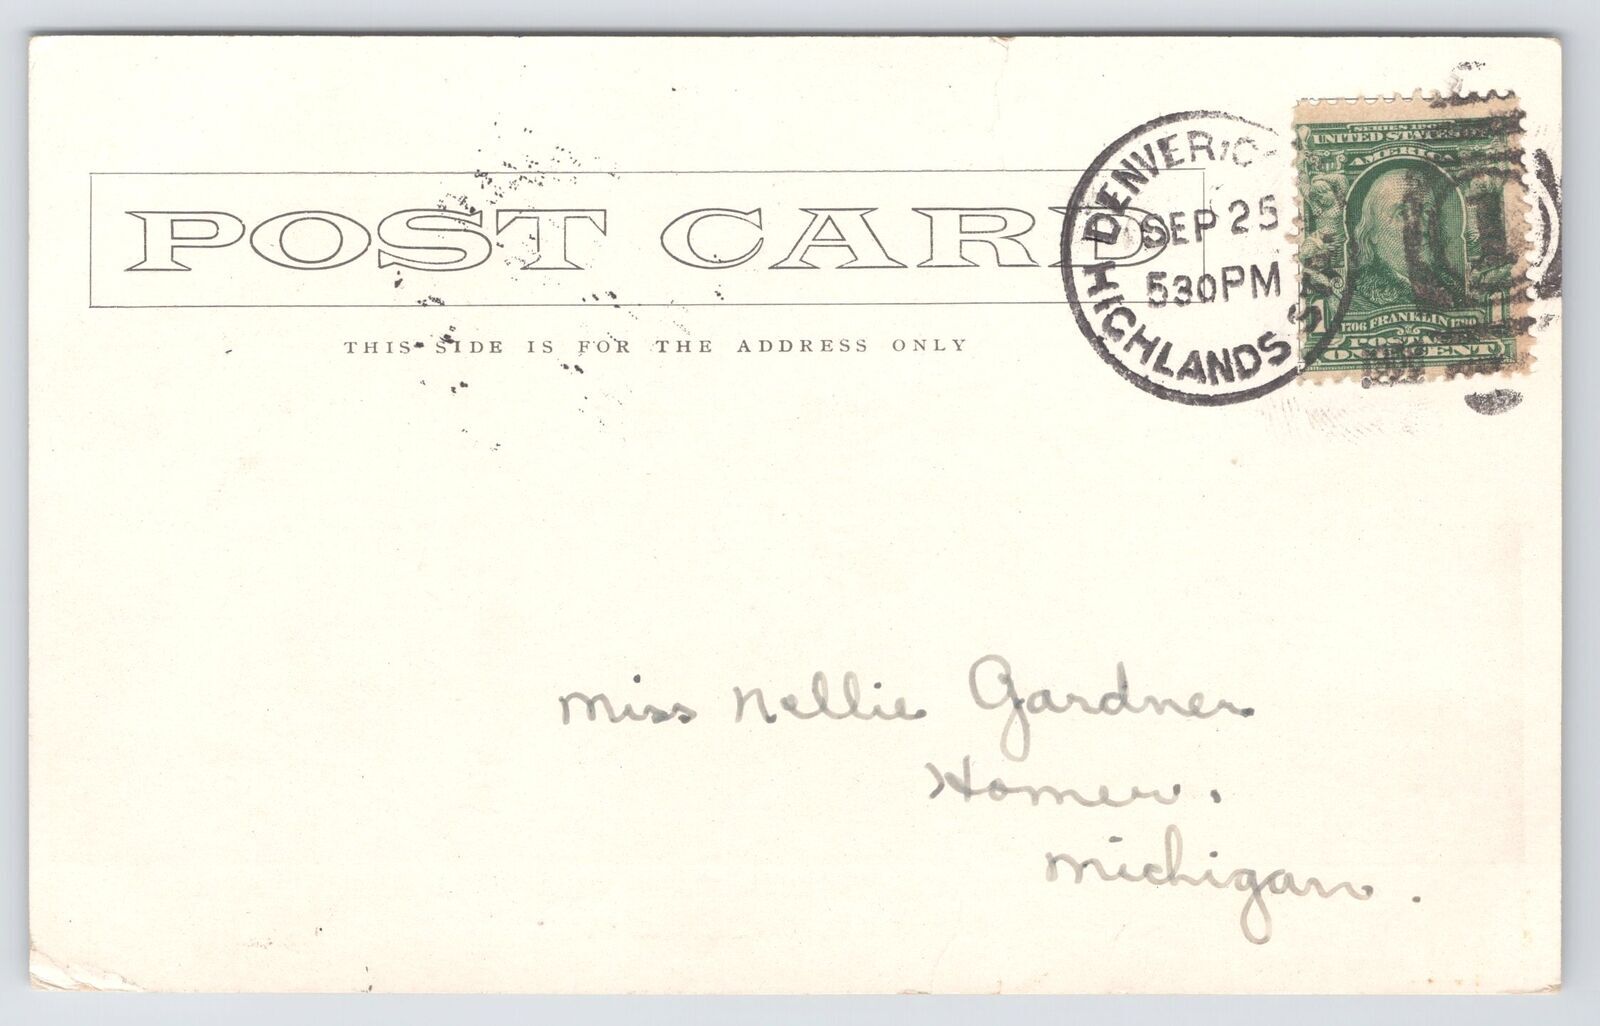 POST CARD
THIS SIDE IS FOR THE ADDRESS ONLY
DENVER, C
SEP 25
530PM
HIGHLANDS STA
SERIES 1902
UNITED STATES OF
AMERICA
1706 FRANKLIN 1790
1 1
POSTAGE
ONE CENT
1
Miss Nellie Gardner
Homer.
Michigan.